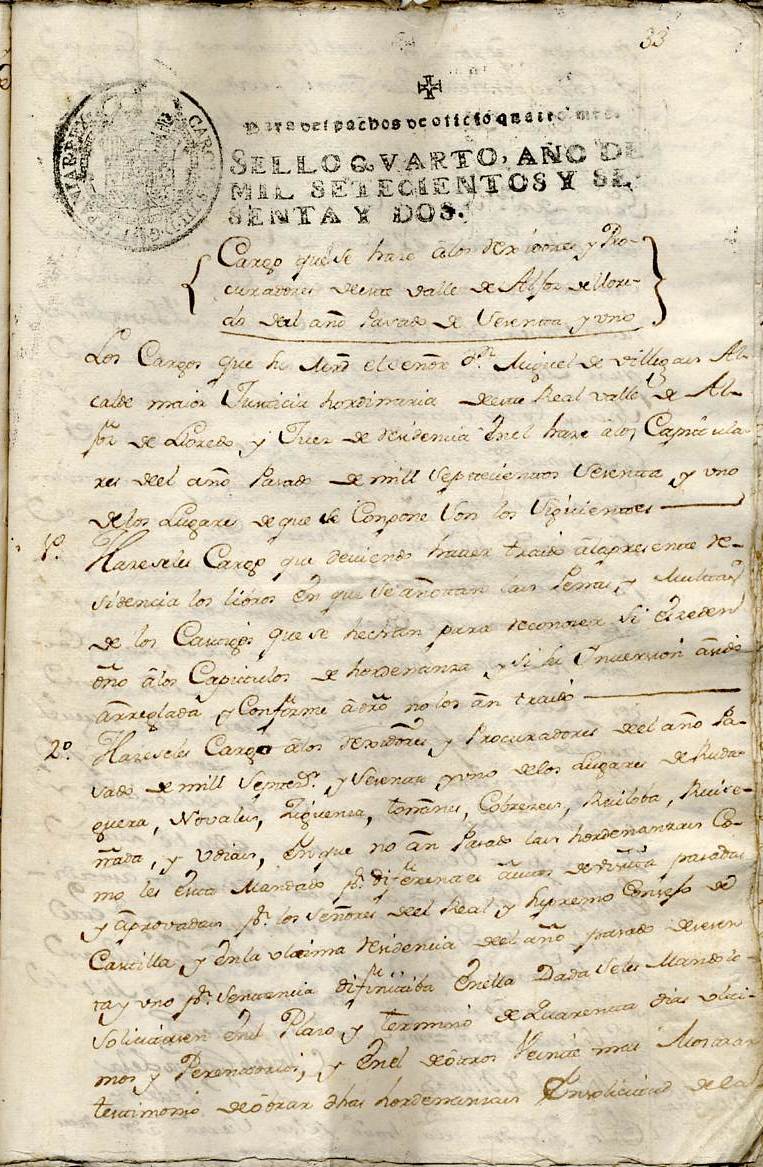 33
Para despachos de oficio quatro mrs.
SELLO QVARTO, AÑO DE
MIL SETECIENTOS Y SE-
SENTA Y DOS.
CAROLUS III D G HISPANIAR REX
Cargo que se haze â los Rexidores y Pro-
curadores deeste valle de Alfoz de Llore-
do del año Pasado de Sesenta y uno
Los Cargos que su Mrd el señor Dn. Miguel de Villegas Al-
calde maior Justicia hordinaria deeste Real valle de Al-
foz de Lloredo y Juez de Residencia Enel haze â los Capitula-
res deel año Pasado de mill Septecientos Sesenta y uno
de los Lugares de que se Conpone Son los Siguientes
1º. Hazeseles Cargo que deviendo haver traido â la presente Re-
sidencia los libros En que se anottan las Penas, y Multas
de los Castigos que se hechan para reconozer si Exeden
ô no â los Capitulos de hordenanza y si su Inversion â sido
arreglada y Conforme â dro no los ân traido
2º. Hazeseles Cargo â los Rexidores y Procuradores del año Pa-
sado de mill Septezs. y Sesenta y uno de los Lugares de Ruda-
guera, Novales, Ziguenza, toñanes, Cobrezes, Ruiloba, Ruise-
ñada, y Udias, En que no ân Pasado las hordenanzas Co-
mo les Esta Mandado pr. diferentes autos de visita pasadas
y aprovadas pr. los Señores del Real y Supremo Consejo de
Castilla y Enla ultima Residencia del año pasado de sesen-
ta y uno pr. Sentencia difinitiba Enella Dada Seles Mando lo
Solicittasen Enel Plazo y termino de Quarenta dias ulti-
mos y Perentorios, y Enel de ôtros Veinte mas Mostraran
testimonio de ôbrar dhas hordenanzas Ensolicitud de la